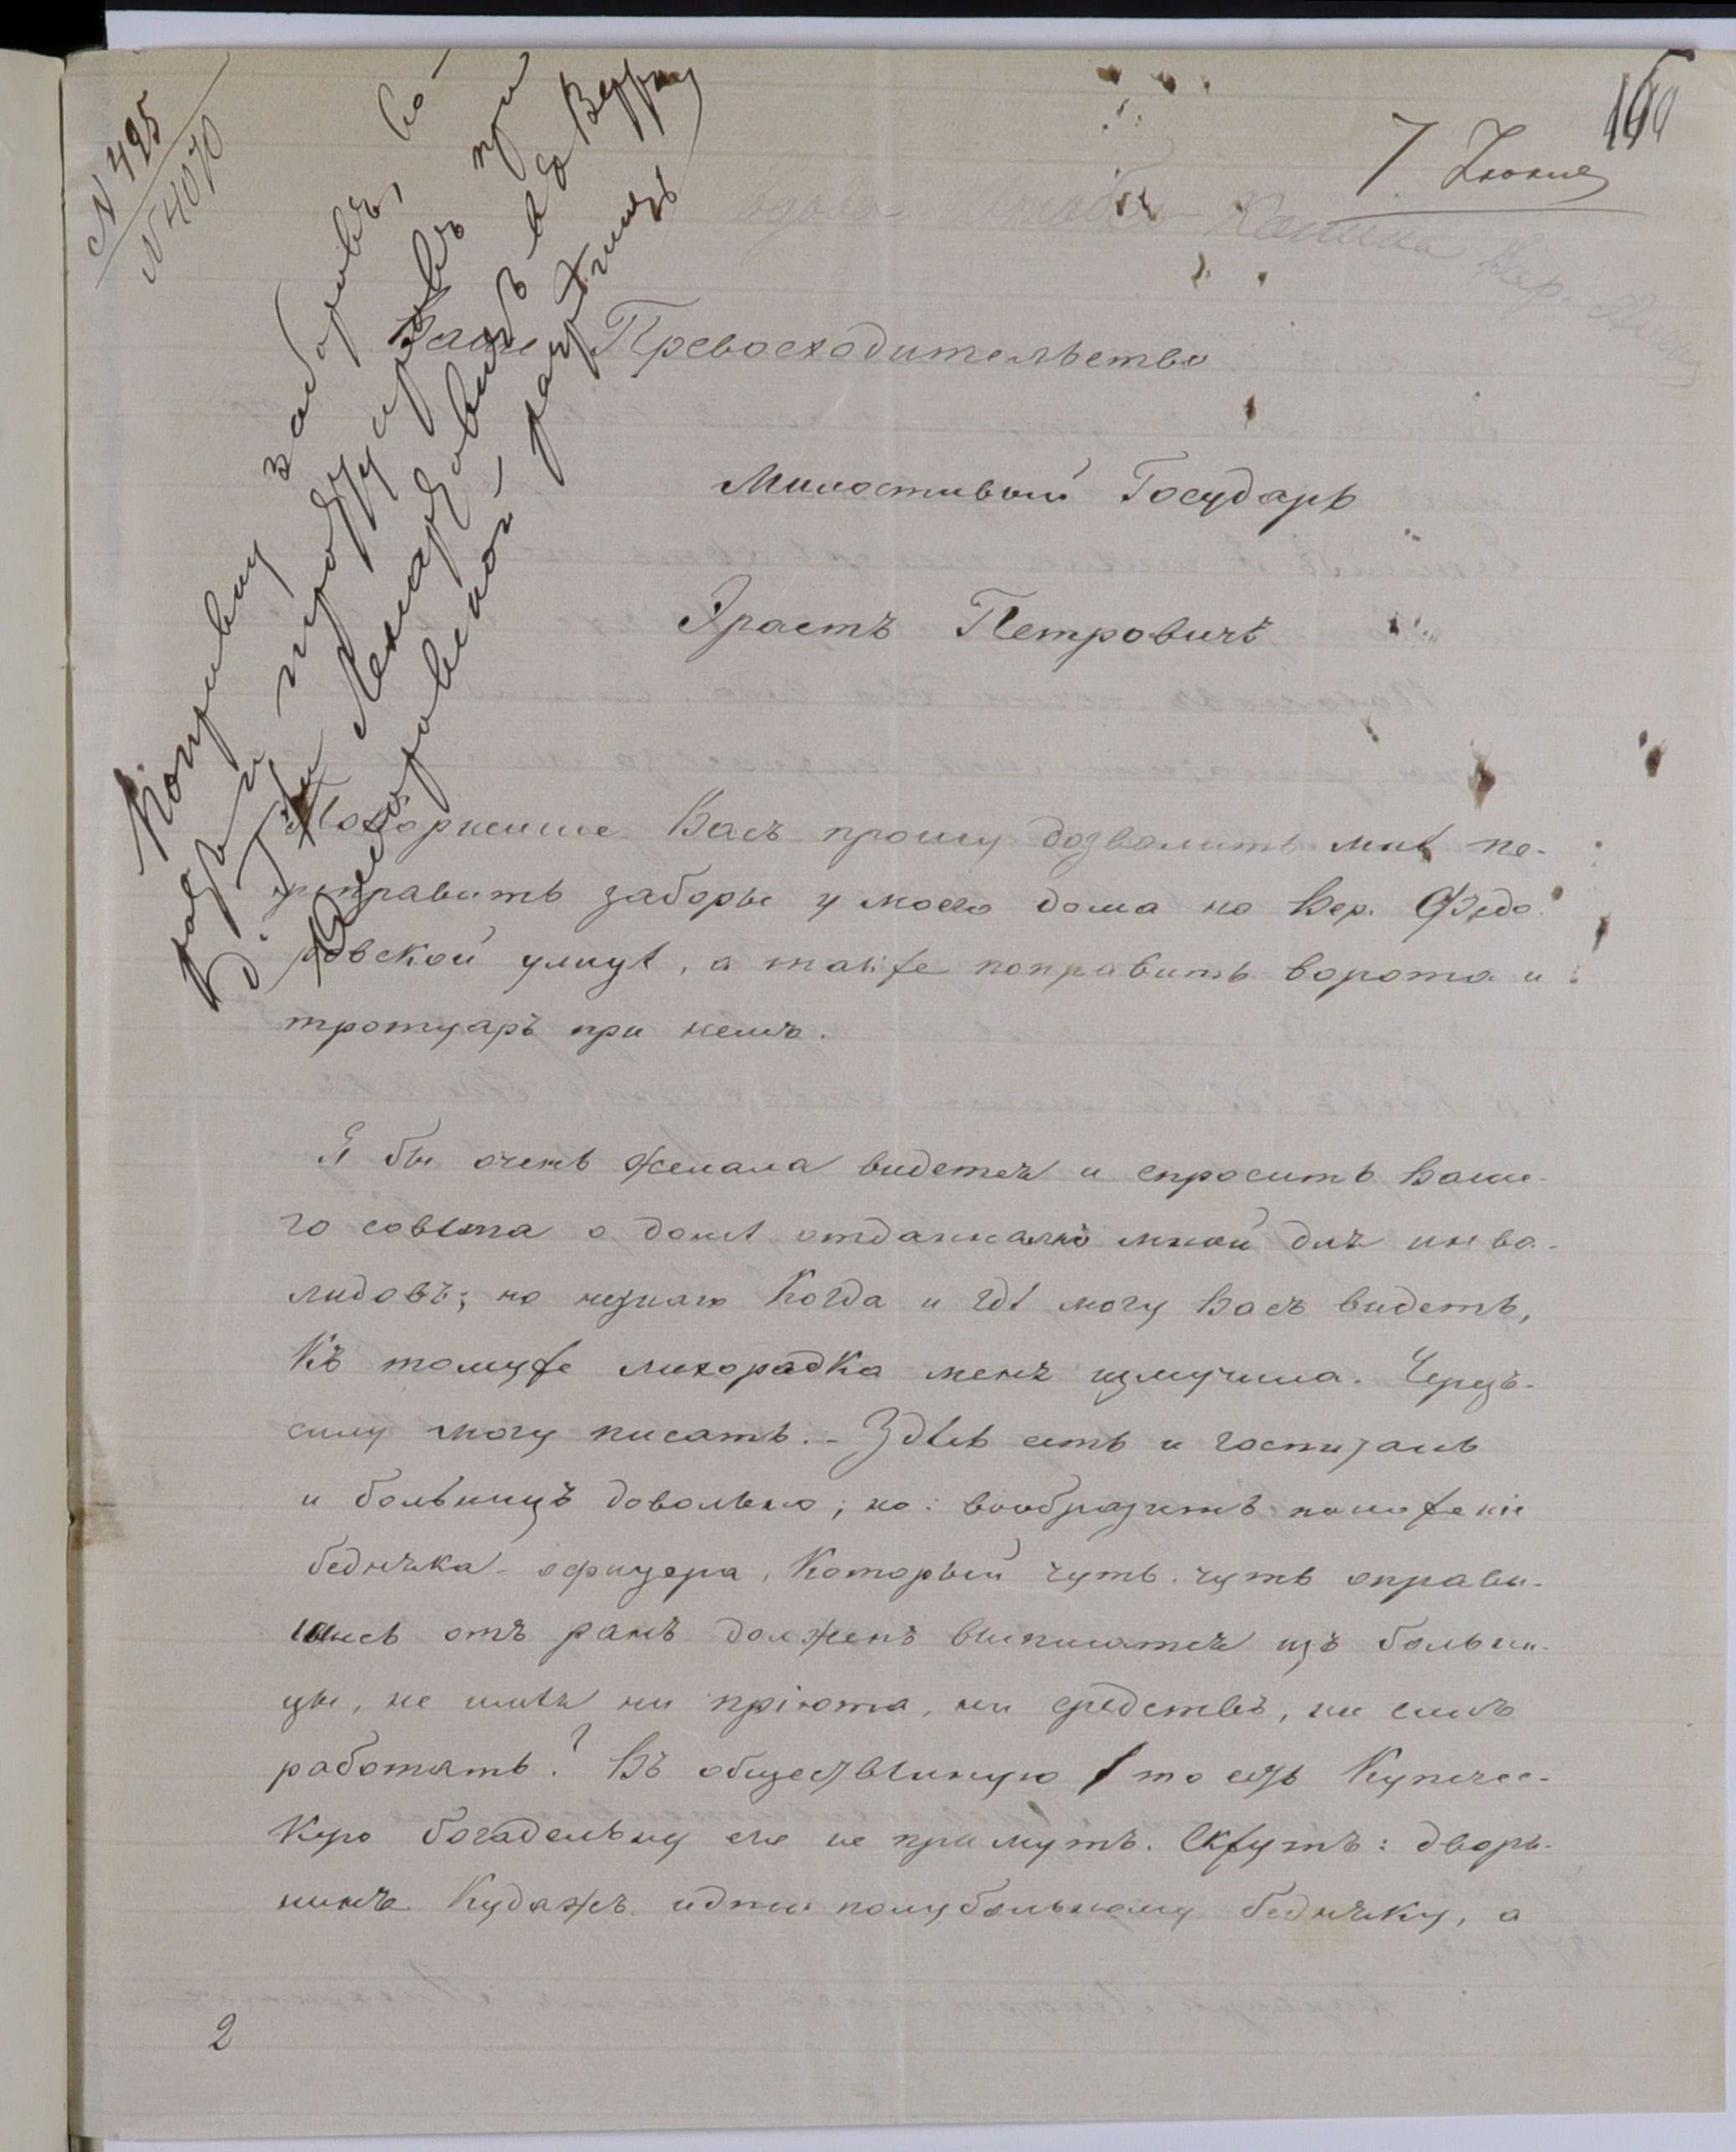 N 495
N 4070
7 Июня
Поправку заборовъ, во-
ротъ и тротуаровъ при
д. Г-жи
разрешить
Ваше Превосходительство
Милостивый Государь
Эрастъ Петровичъ
Покорнейше Васъ прошу дозволить мнѣ по-
поправить заборы у моего дома на Вер. Ѳедо-
ровской улицѣ, а также поправить ворота и
тротуаръ при немъ.
Я бы очень желала видеться и спросить Ваше-
го совѣта о домѣ отданномъ мной для инва-
лидовъ; но незнаю когда и гдѣ могу Васъ видеть,
Къ томуже лихорадка меня измучила. Черезъ-
силу могу писать. - Здѣсь есть и госпиталь
и больницъ довольно; но: вообразить положеніе
бедняка-офицера, Который чуть-чуть оправи-
шись отъ ранъ долженъ выписаться изъ больни-
цы, не имѣя ни пріюта, ни средствъ, ни силъ
работать? Въ общественную то есть Купечес-
кую богадельну его не примутъ. Скжутъ: дворя-
нинъ Кудажъ идти полубольному бедняку, а
2